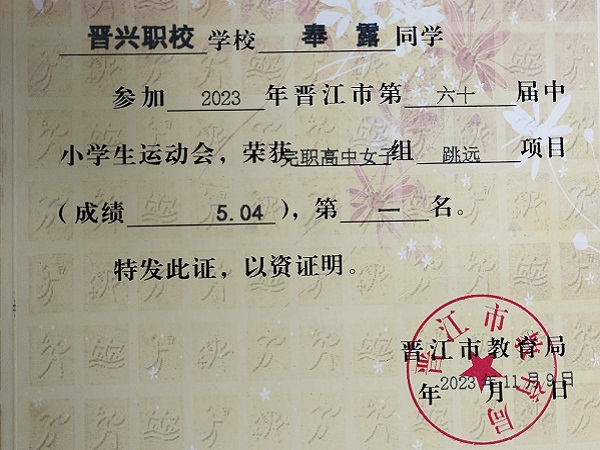 晋兴职校学校 奉 露同学
参加 2023 年晋江市第 六十 届中
小学生运动会，荣获完职高中女子组 跳远 项目
（成绩 5.04 ），第 一 名。
特发此证，以资证明。
晋江市教育局
2023年11月9日
年 月 日
晋江市教育局